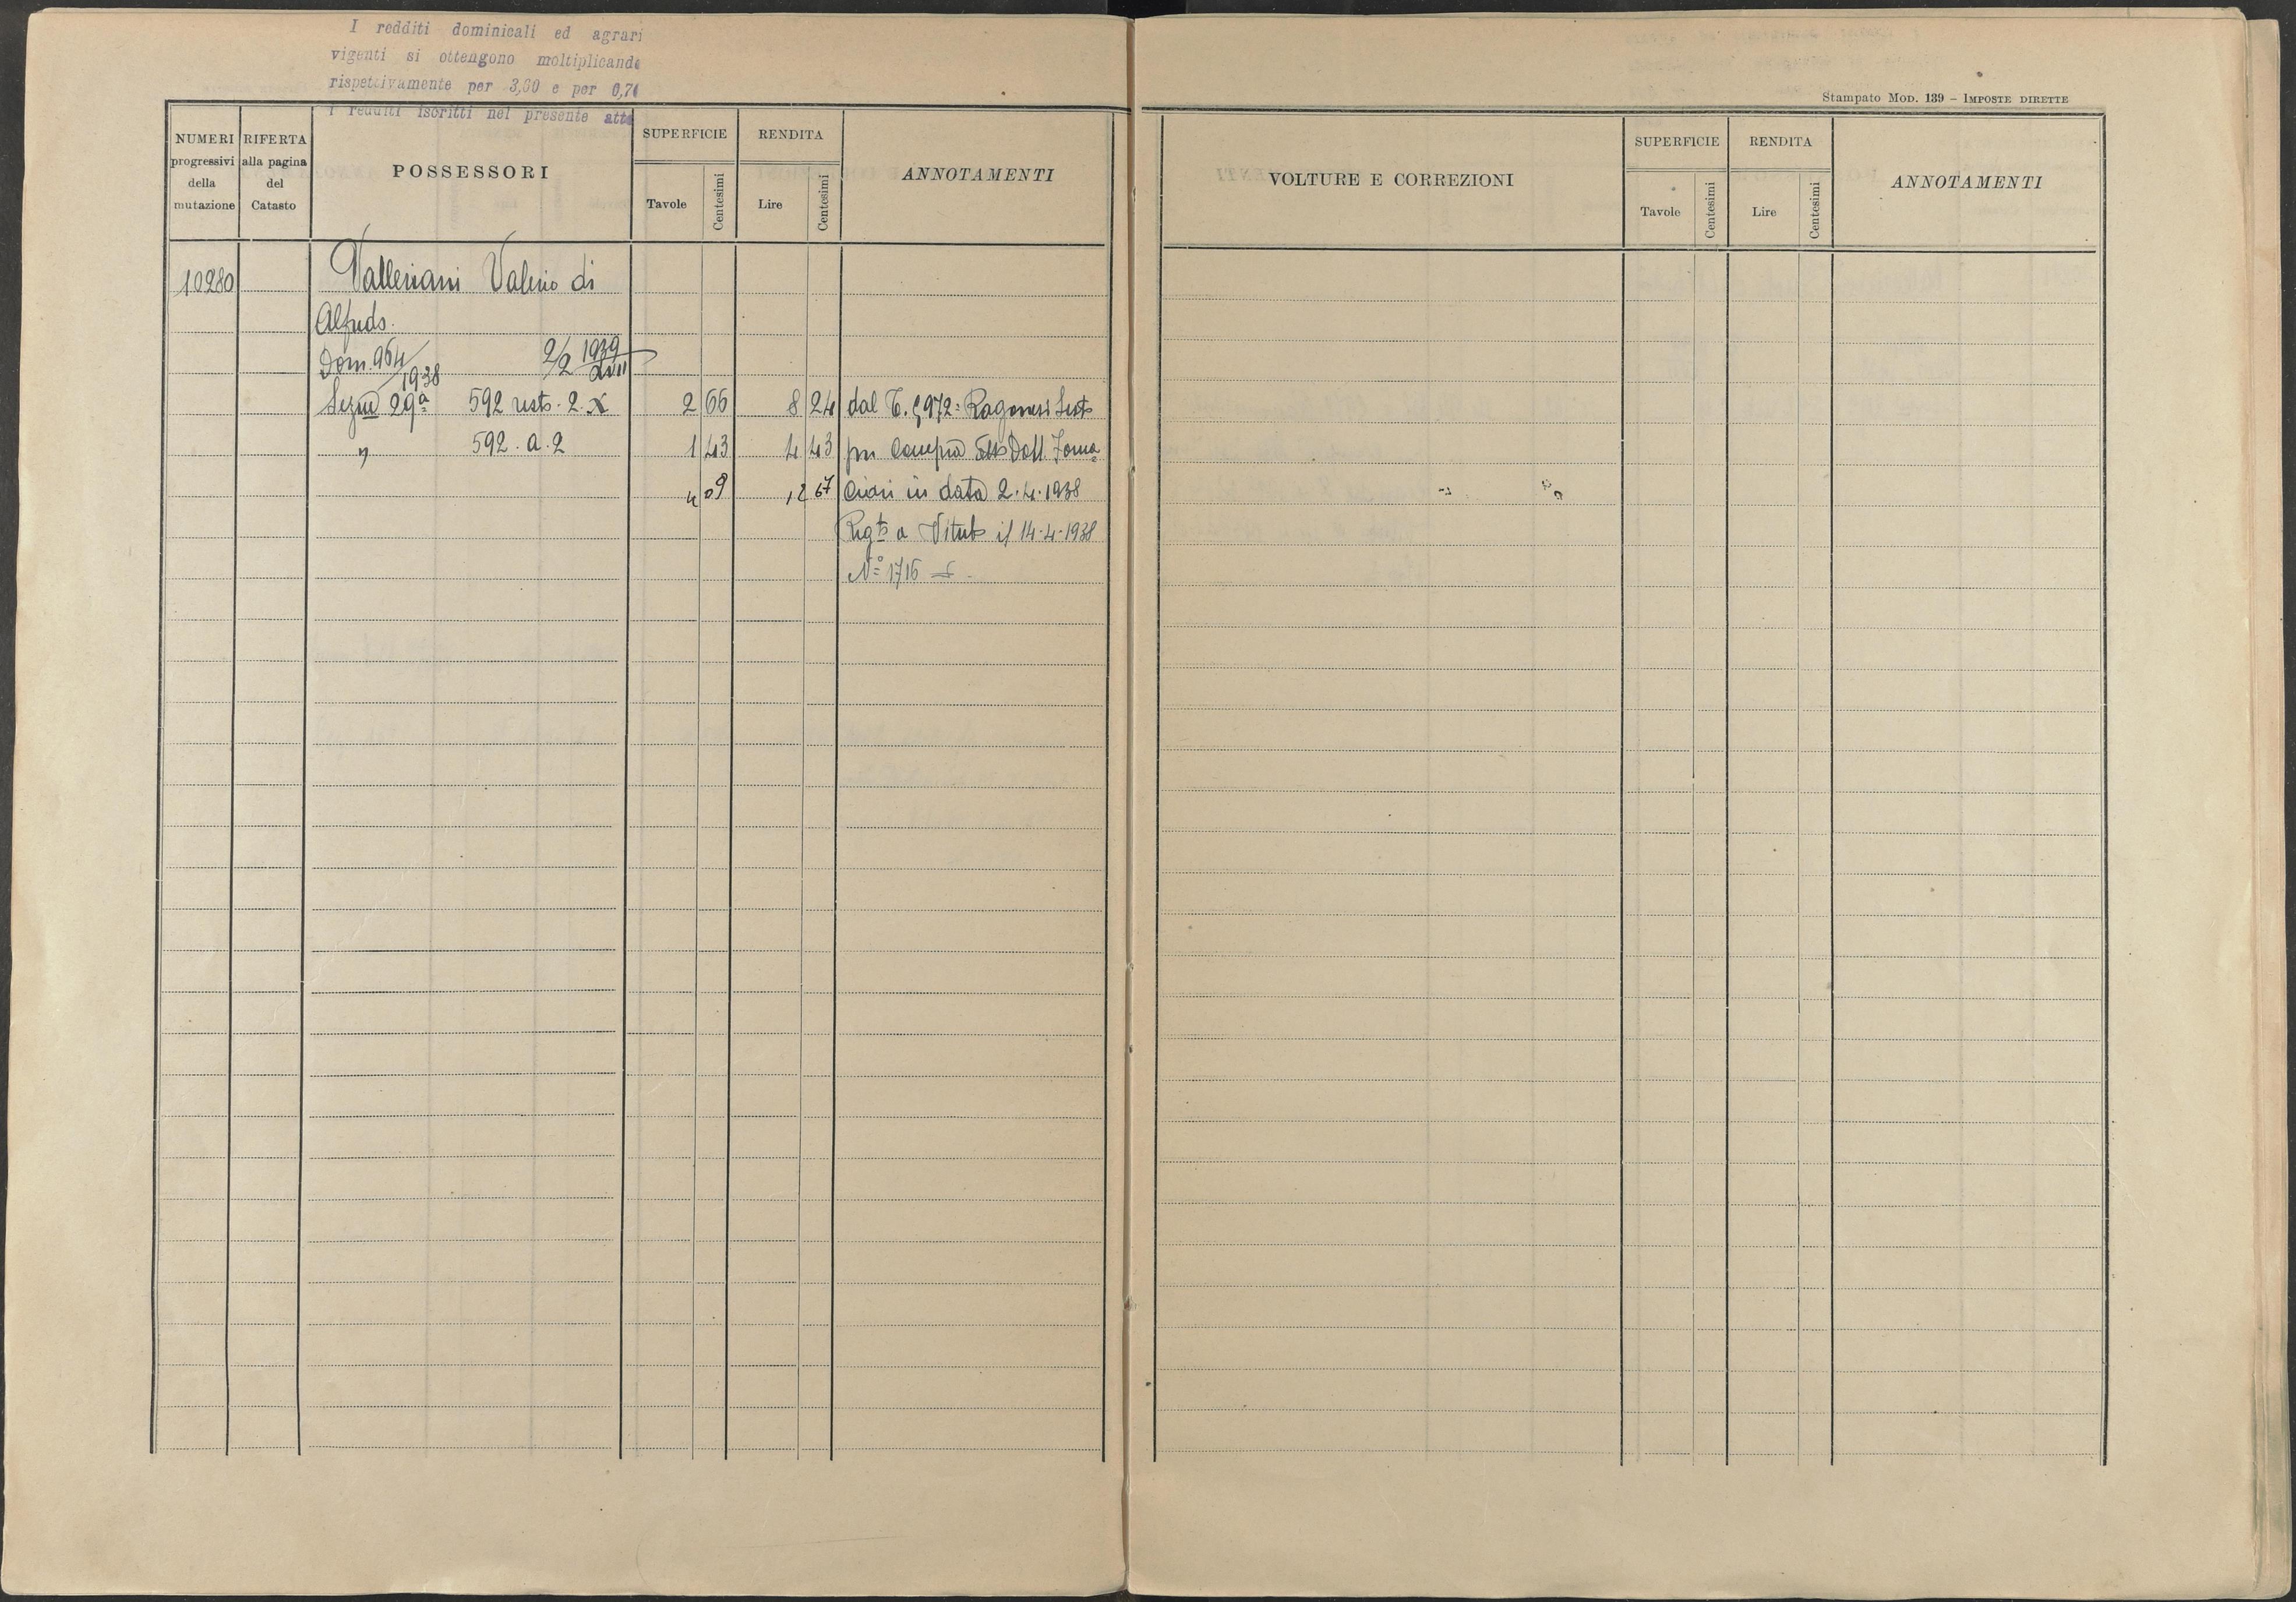 I redditi dominicali ed agrari
vigenti si ottengono moltiplicando
rispettivamente per 3,60 e per 0,70
i redditi iscritti nel presente atto
Stampato Mod. 139 – IMPOSTE DIRETTE
NUMERI progressivi della mutazione
RIFERTA alla pagina del Catasto
POSSESSORI
SUPERFICIE
Tavole
Centesimi
RENDITA
Lire
Centesimi
ANNOTAMENTI
10280 Valleriani Valerio di
Alfredo.
Dom. 964/1938 2/2 1939 XVII
Sezne 29a 592 resto. 2. X 2 66 8 24 dal T. 972= Ragonesi Sesto
" 592. a. 2 1 43 4 43 per Compra Dott. Forna=
4 09 12 67 Ciari in data 2.4.1938
Regto a Viterbo il 14.4.1938
No 1716
VOLTURE E CORREZIONI
SUPERFICIE
Tavole
Centesimi
RENDITA
Lire
Centesimi
ANNOTAMENTI